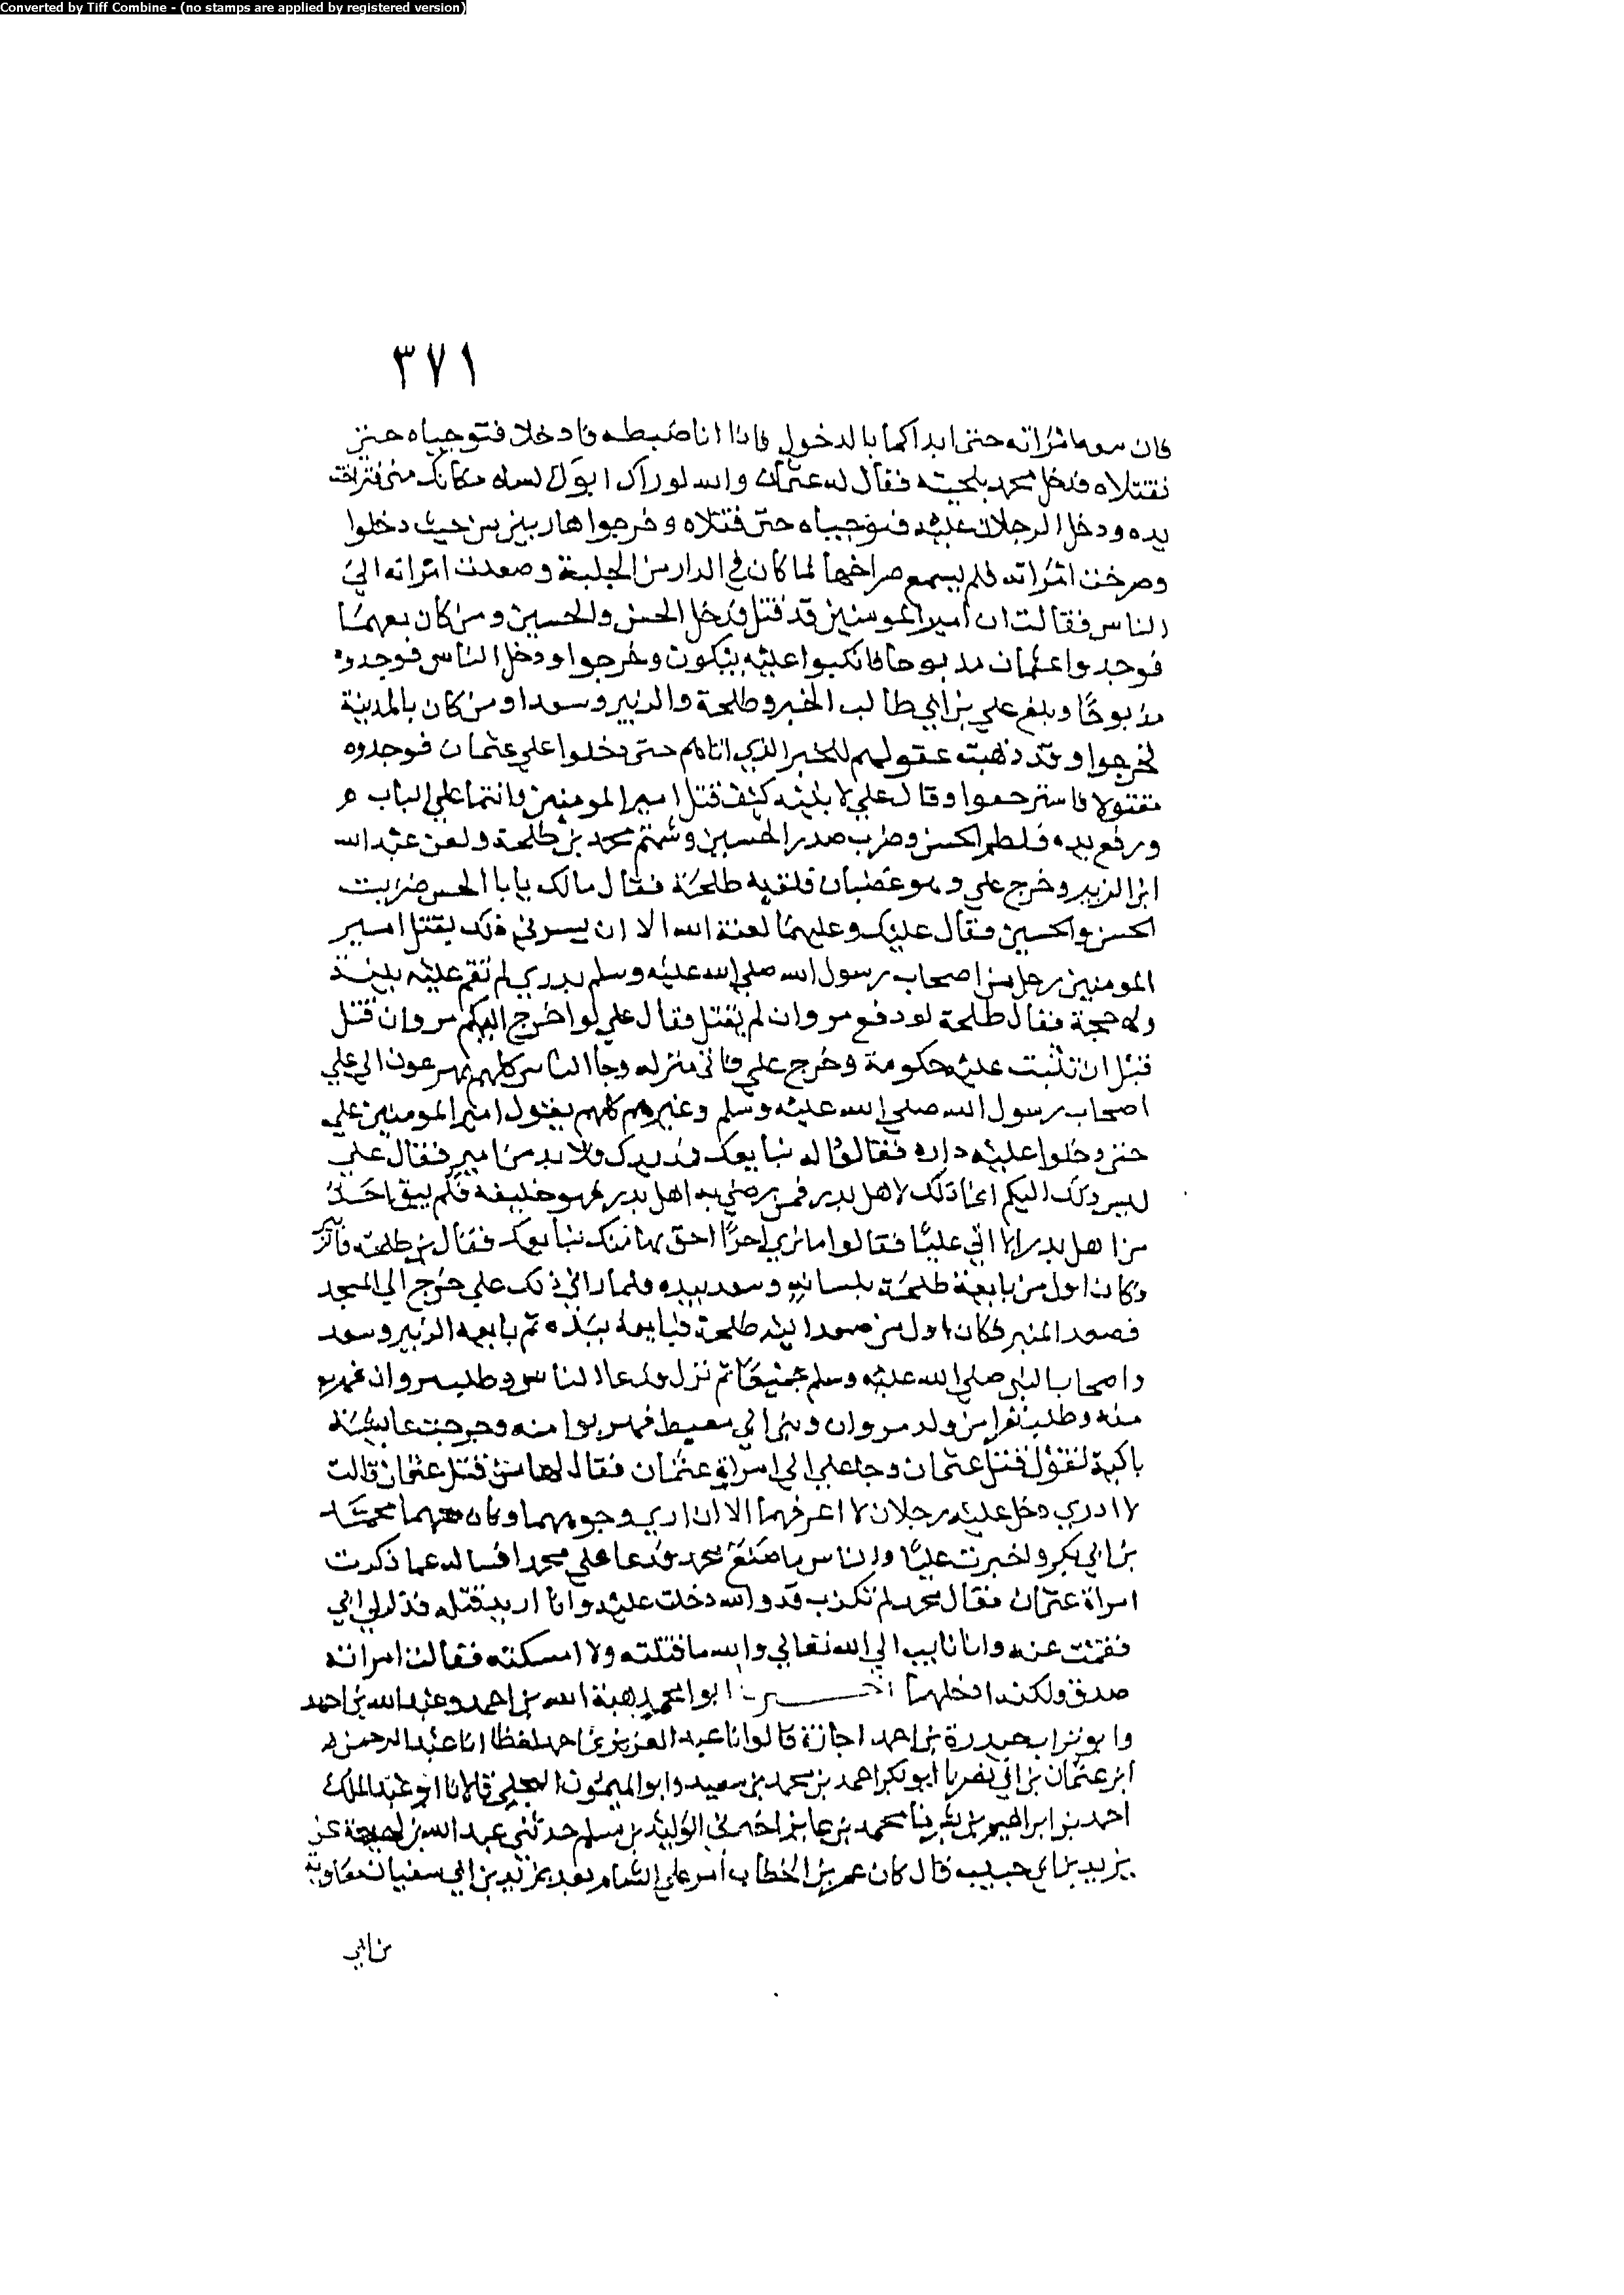 Converted by Tiff Combine - (no stamps are applied by registered version)
٣٧١
فان معه امراته حتى ابداكما بالدخول فاذا انا ضبطه فادخلا فتوجياه حتى
تقتلاه فدخل محمد بلحيته فقال له عثمان والله لو راك ابوك لساه مكانك منى فتراخت
يده ودخل الرجلان عليه فتوجياه حتى قتلاه وخرجوا هاربين من حيث دخلوا
وصرخت امراته فلم يسمع صراخها لما كان في الدار من الجلبة وصعدت امراته الى
الناس فقالت ان امير المومنين قد قتل فدخل الحسن والحسين ومن كان معهما
فوجدوا عثمان مذبوحا فانكبوا عليه يبكون وخرجوا ودخل الناس فوجدوه
مذبوحا وبلغ علي بن ابي طالب الخبر وطلحة والزبير وسعدا ومن كان بالمدينة
فخرجوا وقد ذهبت عقولهم للخبر الذي اتاهم حتى دخلوا على عثمان فوجدوه
مقتولا فاسترجعوا وقال علي لابنيه كيف قتل امير المومنين وانتما على الباب
ورفع يده فلطم الحسن وضرب صدر الحسين وشتم محمد بن طلحة ولعن عبد الله
ابن الزبير وخرج علي وهو غضبان فلقيه طلحة فقال مالك يابا الحسن ضربت
الحسن والحسين فقال عليك وعليهما لعنة الله الا ان يسوني ذلك يقتل امير
المومنين رجل من اصحاب رسول الله صلى الله عليه وسلم بدري لم تقم عليه بينة
ولا حجة فقال طلحة لو دفع مروان لم يقتل فقال علي لو اخرج اليكم مروان قتل
قبل ان تثبت عليه حكومة وخرج علي فاتى منزله وجا الناس كلهم يهرعون الى علي
اصحاب رسول الله صلى الله عليه وسلم وغيرهم كلهم يقول امير المومنين علي
حتى دخلوا عليه داره فقالوا له نبايعك فمد يدك ولا بد من امير فقال علي
ليس ذلك اليكم انما ذلك لاهل بدر فمن رضي به اهل بدر فهو خليفة فلم يبق احد
من اهل بدر الا اتى عليا فقالوا ما نرى احدا احق بها منك نبايعك فقال اين طلحة والزبير
وكان اول من بايعه طلحة بلسانه وسعد بيده فلما راى ذلك علي خرج الى المسجد
فصعد المنبر فكان اول من صعد اليه طلحة فبايعه بيده ثم بايعه الزبير وسعد
واصحاب النبي صلى الله عليه وسلم جميعا ثم نزل فدعا الناس وطلب مروان فهرب
منه وطلب نفرا من ولد مروان وبني ابي معيط فهربوا منه وخرجت عايشة
باكية تقول قتل عثمان وجا علي الى امراة عثمان فقال لها من قتل عثمان قالت
لا ادري دخل عليه رجلان لا اعرفهما الا ان ارى وجوههما وكان معهما محمد
بن ابي بكر واخبرت عليا والناس ما صنع محمد فدعا علي محمدا فساله عما ذكرت
امراة عثمان فقال محمد لم تكذب قد والله دخلت عليه وانا اريد قتله فذكر لي ابي
فقمت عنه وانا تايب الى الله تعالى والله ما قتلته ولا امسكته فقالت امراته
صدق ولكنه ادخلهما اخبرنا ابوا محمد هبة الله بن احمد وعبد الله بن احمد
وابو تراب حيدرة بن احمد اجازة قالوا نا عبد العزيز بن احمد لفظا انا عبد الرحمن
ابن عثمان بن ابي نصر نا ابو بكر احمد بن محمد بن سعيد وابو الميمون البجلي قالا نا ابو عبد الملك
احمد بن ابراهيم بن بشر نا محمد بن عايز اخبرني الوليد بن مسلم حدثني عبد الله بن لهيعة عن
يزيد بن ابي حبيب قال كان عمر بن الخطاب امر على الشام بعد يزيد بن ابي سفيان معاوية
بن ابي